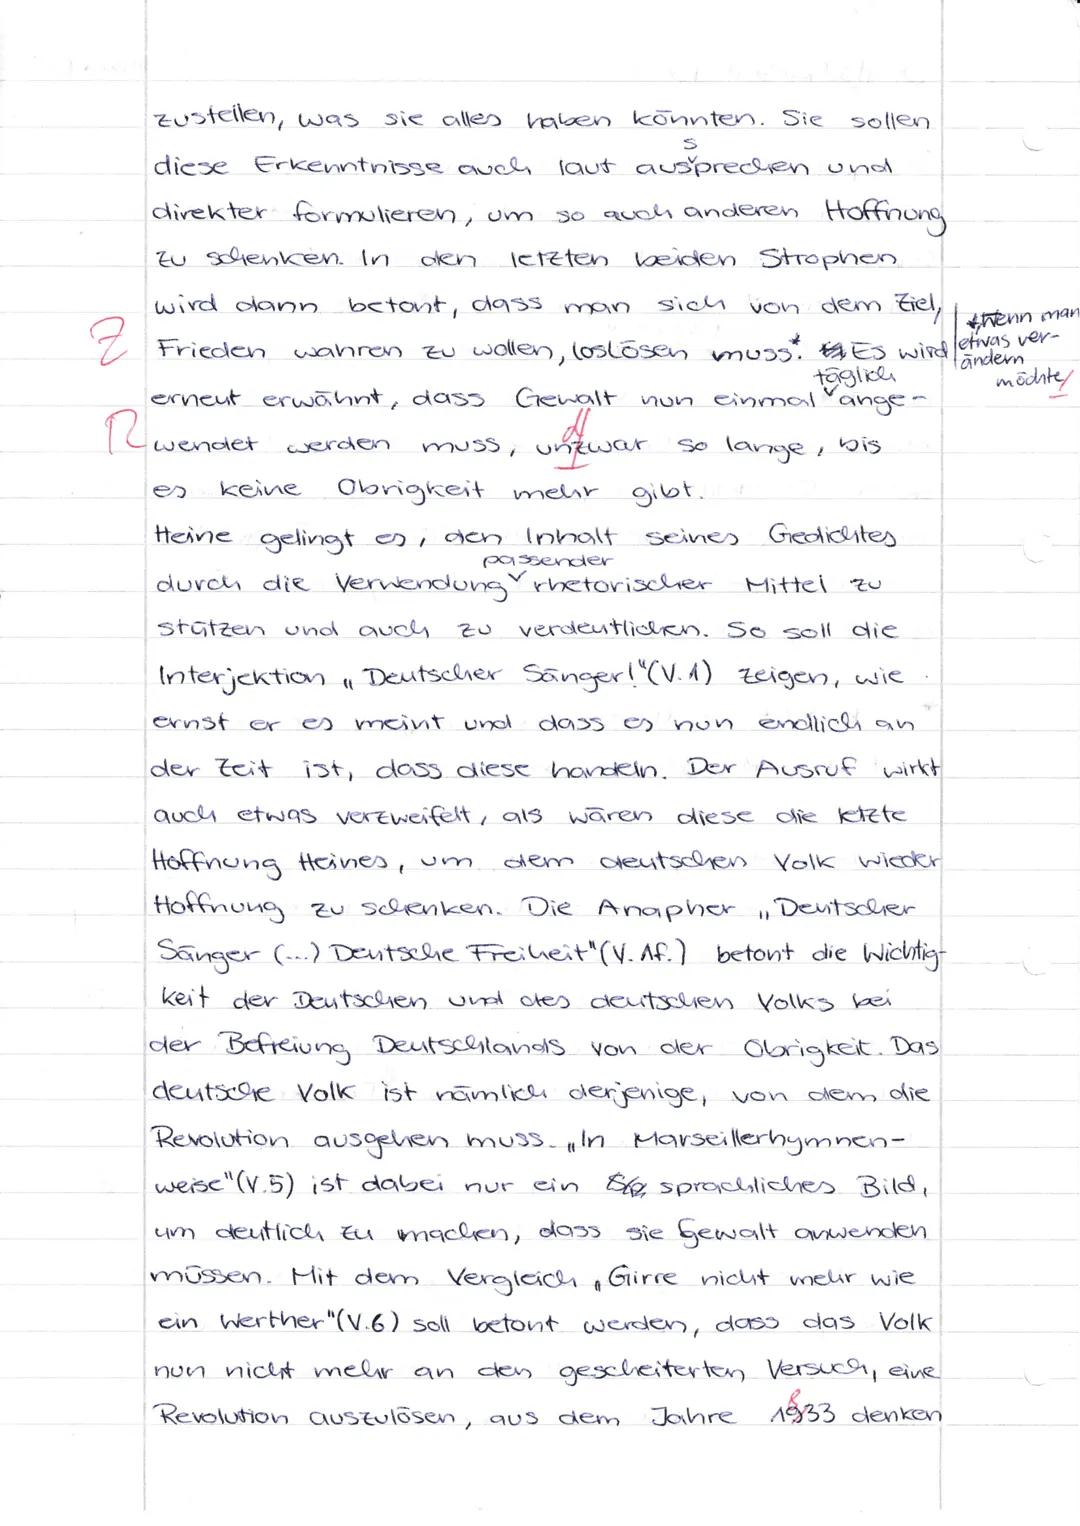 zustellen, was sie alles haben könnten. Sie sollen
s
diese Erkenntnisse auch laut ausˇprechen und
direkter formulieren, um so auch anderen Hoffnung
zu schenken. In den letzten beiden Strophen
wird dann betont, dass man sich von dem Ziel,
*wenn man
etwas ver-
ändern
möchte
Z
Frieden wahren zu wollen, loslösen muss*. Es wird
täglich
erneut erwähnt, dass Gewalt nun einmal ˇange-
R
d
wendet werden muss, unzwar so lange, bis
es keine Obrigkeit mehr gibt.
Heine gelingt es, den Inhalt seines Gedichtes
passender
durch die Verwendungˇrhetorischer Mittel zu
stützen und auch zu verdeutlichen. So soll die
Interjektion „Deutscher Sänger!"(V.1) zeigen, wie
ernst er es meint und dass es nun endlich an
der Zeit ist, dass diese handeln. Der Ausruf wirkt
auch etwas verzweifelt, als wären diese die letzte
Hoffnung Heines, um dem deutschen Volk wieder
Hoffnung zu schenken. Die Anapher „Deutscher
Sänger (...) Deutsche Freiheit"(V.1f.) betont die Wichtig-
keit der Deutschen und des deutschen Volks bei
der Befreiung Deutschlands von der Obrigkeit. Das
deutsche Volk ist nämlich derjenige, von dem die
Revolution ausgehen muss. „In Marseillerhymnen-
weise"(V.5) ist dabei nur ein sprachliches Bild,
um deutlich zu machen, dass sie Gewalt anwenden
müssen. Mit dem Vergleich „Girre nicht mehr wie
ein Werther"(V.6) soll betont werden, dass das Volk
nun nicht mehr an den gescheiterten Versuch, eine
8
Revolution auszulösen, aus dem Jahre 1933 denken